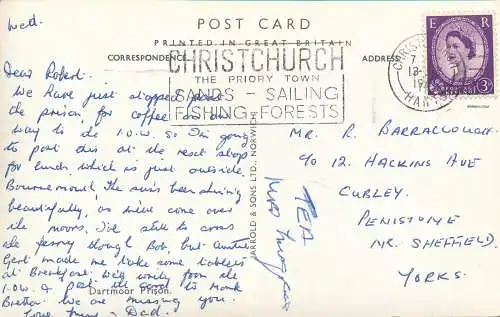 Wed.
POST CARD
PRINTED IN GREAT BRITAIN
CORRESPONDENCE
ADDRESS
CHRISTCHURCH
THE PRIORY TOWN
SANDS - SAILING
FISHING - FORESTS
E R
3D
Dear Robert.
We have just stopped past
the prison for coffee on our
way to the I.O.W. so I'm going
to post this at the next stop
for lunch which is just outside
Bournemouth the sun's been shining
beautifully, as we've come over
the moors. I've still to cross
the ferry though Bob, but Auntie
Gert made me take some tablets
at Breakfast. We'll write from the
I.O.W. & Post the card to Monk
Bretton We are missing you.
Love Mum & Dad.
Dartmoor Prison.
JARROLD & SONS LTD., NORWICH
TEA
Mrs
MR. R. BARRACLOUGH.
C/O 12, HACKING AVE
CUBLEY.
PENISTONE
NR. SHEFFIELD.
YORKS.